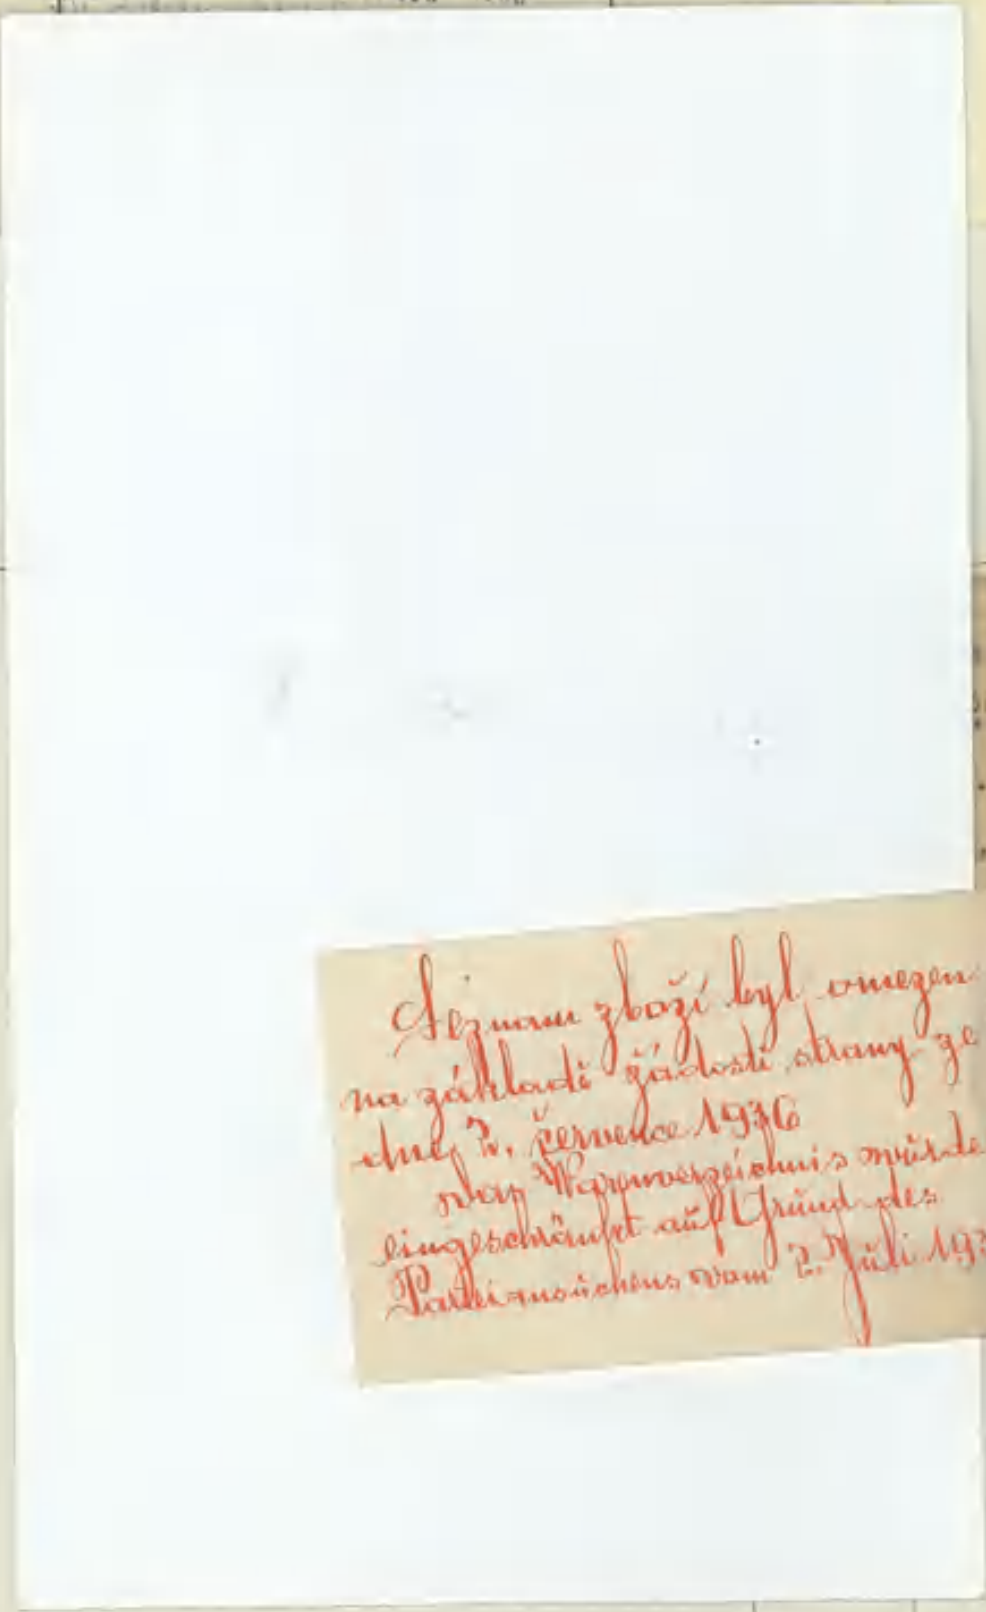 Seznam zboží byl omezen
na základě žádosti strany ze
dne 2. července 1936
Das Warenverzeichnis würde
eingeschränkt auf Grund des
Parteiansuchens vom 2. Juli 193